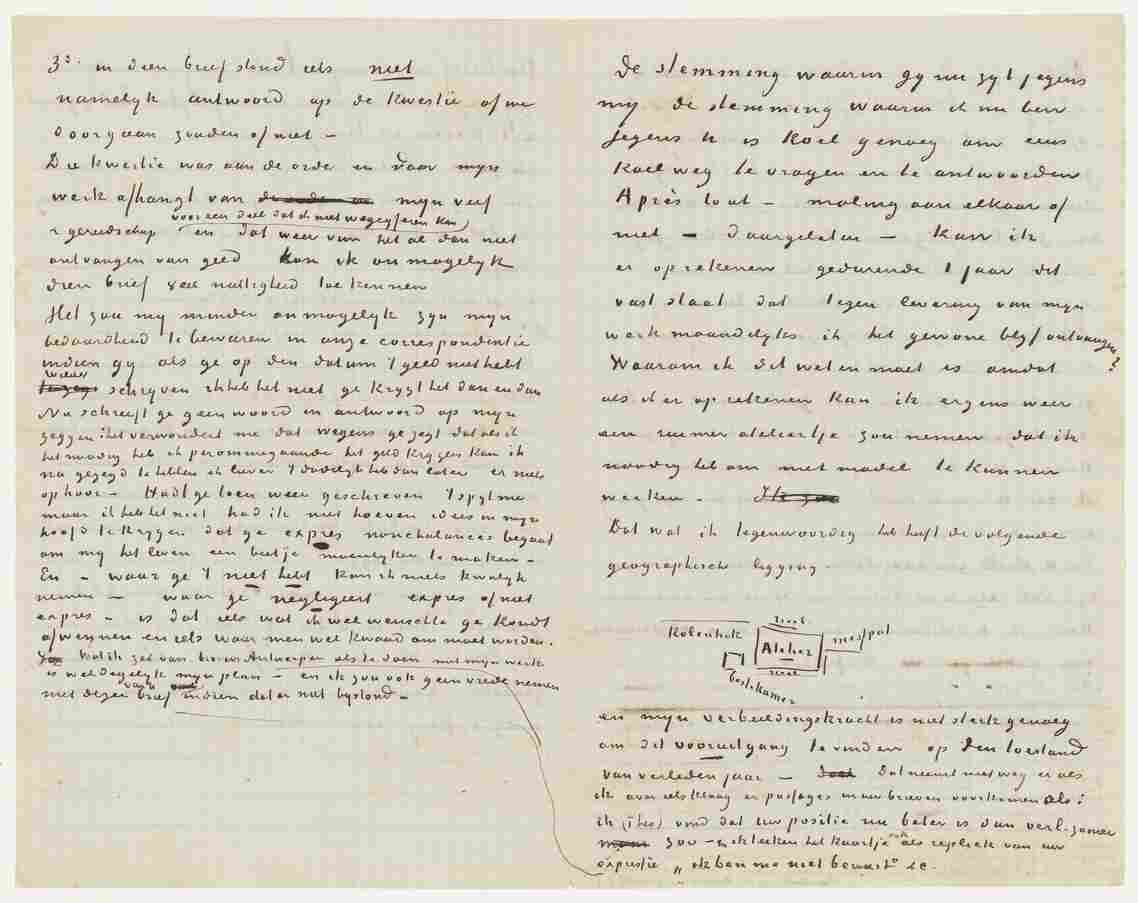 3º. in dien brief stond iets niet
namelyk antwoord op de kwestie of we
doorgaan zouden of niet –
Die kwestie was aan de orde en daar myn
werk afhangt van myn verf
voor een deel dat ik niet wegcyferen kan
& gereedschap en dat weer van het al dan niet
ontvangen van geld kon ik onmogelyk
dien brief veel nuttigheid toekennen
Het zou my minder onmogelyk zyn myn
bedaardheid te bewaren in onze correspondentie
indien gy als ge op den datum 't geld niet hebt
weer
schryven ik heb het niet ge krygt het dan en dan
Nu schreeft ge geen woord in antwoord op myn
zeggen: het verwondert me dat wegens gezegd dat als ik
het noodig heb ik per ommegaande het geld krygen kan ik
na gezegd te hebben ik liever 't dadelyk heb dan later er niets
op hoor – Hadt ge toen weer geschreven 't spyt me
maar ik heb het niet had ik niet hoeven idees in myn
hoofd te krygen dat ge expres nonchalances begaat
om my het leven een beetje moeielyker te maken –
En – waar ge 't niet hebt kan ik niets kwalyk
nemen – waar ge negligeert expres of niet
expres – is dat iets wat ik wel wenschte ge kondt
afwennen en iets waar men wel kwaad om moet worden.
Wat ik zei van Antwerpen als te doen met myn werk
is wel degelyk myn plan – en ik zou ook geen vrede nemen
met dezen brief indien dat er niet bystond –
De stemming waarin gy nu zyt jegens
my de stemming waarin ik nu ben
jegens U is koel genoeg om eens
koelweg te vragen en te antwoorden
Après tout – maling aan elkaar of
niet – daargelaten – kan ik
er op rekenen gedurende 1 jaar dit
vast staat dat tegen levering van myn
werk maandelyks ik het gewone blyf ontvangen?
Waarom ik dit weten moet is omdat
als ik er op rekenen kan ik ergens weer
een ruimer ateliertje zou nemen dat ik
noodig heb om met model te kunnen
werken –
Dat wat ik tegenwoordig heb heeft de volgende
geographisch ligging.
riool
Kolenhok Atelier mestput
riool
bestekamer
en myn verbeeldingskracht is niet sterk genoeg
om dit vooruitgang te vinden op den toestand
van verleden jaar – Dat neemt niet weg er als
ik over iets klaag er passages in uw brieven voorkomen als:
ik (Theo) vind dat uw positie nu beter is dan verl. zomer
zoo – ik teeken het kaartje ook als repliek van uw
expressie „ik ben me niet bewust" &c.